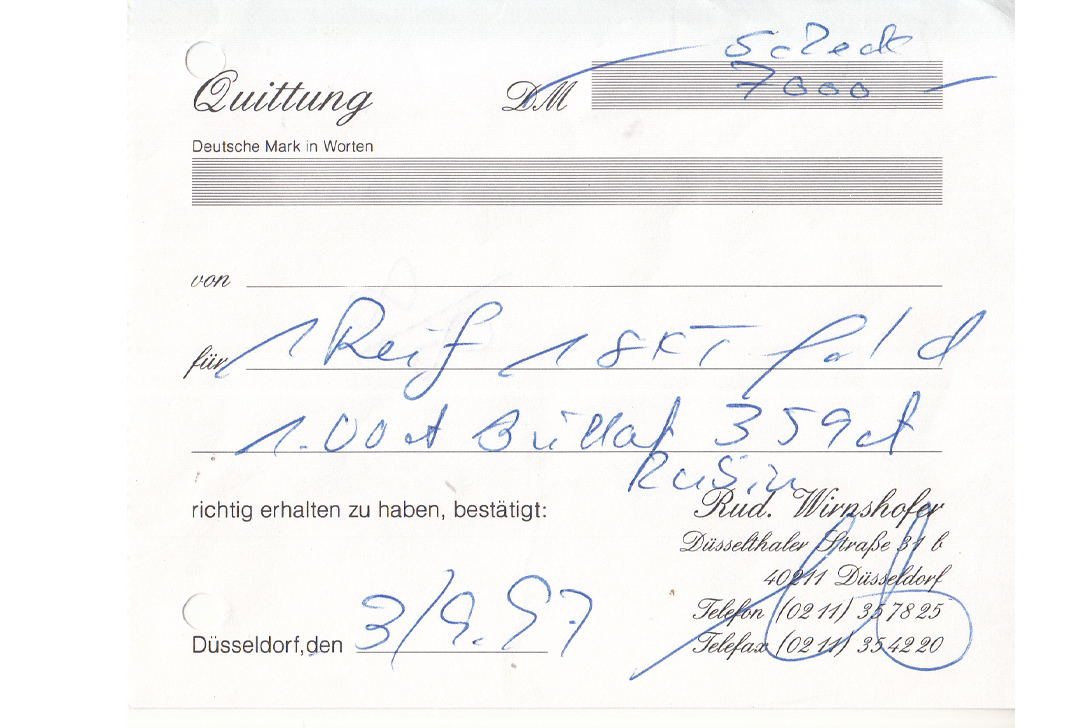 Scheck
Quittung DM 7000 —
Deutsche Mark in Worten
von
für 1 Reif 18 KT Gold
1.00 ct Brillat 359 ct
Rubin
richtig erhalten zu haben, bestätigt:
Rud. Wirnshofer
Düsselthaler Straße 31 b
40211 Düsseldorf
Telefon (02 11) 35 78 25
Telefax (02 11) 35 42 20
Düsseldorf,den 3/9.97